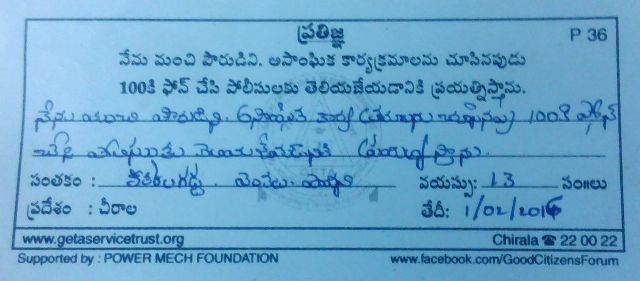 ప్రతిజ్ఞ
P 36
నేను మంచి పౌరుడిని. అసాంఘిక కార్యక్రమాలను చూసినపుడు
100కి ఫోన్ చేసి పోలీసులకు తెలియజేయడానికి ప్రయత్నిస్తాను.
నేను మంచి పౌరుడిని. 100కి ఫోన్
చేసి
సంతకం :
వయస్సు: 13 సం॥లు
ప్రదేశం : చీరాల
తేదీ: 1/02/2016
www.getaservicetrust.org
Chirala ☎ 22 00 22
Supported by : POWER MECH FOUNDATION
www.facebook.com/GoodCitizensForum